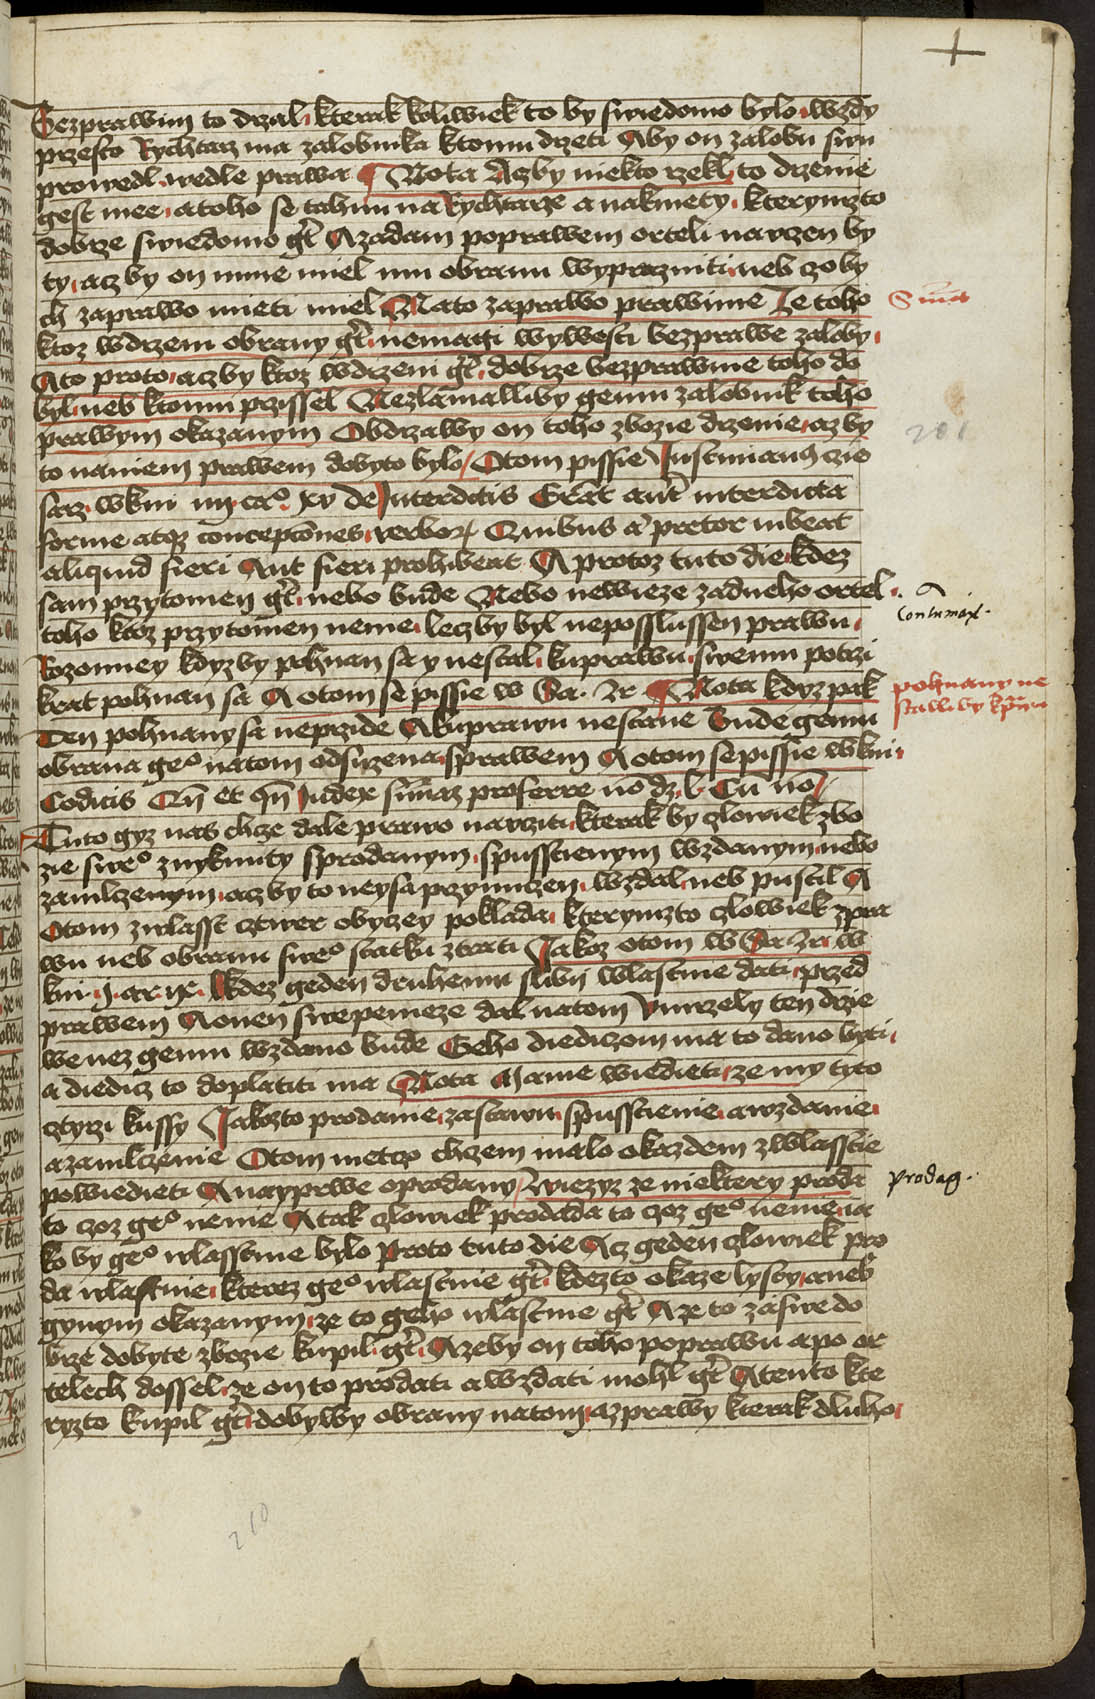 Bezprawim to drzal kterak koliwiek to by swiedomo bylo wzdy
przesto Rychtarz ma zalobnika ktomu drzeti Aby on zalobu swu
prowedl wedle prawa Nota Aczby niekto rzekl to drzenie
gest mee atoho se tahnu na Rychtarze a nakmety kterymzto
dobrze swiedomo gt Azadam poprawem orteli nauczen by
ty aczby on mne miel mu obranu wyprazniti neb czoby
ch zaprawo mieti miel Nato zaprawo prawime Ze toho
ktoz wdrzeni obrany gt nemagi wywesti bezprawe zaloby
Ato proto aczby ktoz wdrzeni gt dobrze bezprawnie toho do
byl neb ktomu przissel Nezlamalliby gemu zalobnik toho
prawym okazanym Obdrzalby on toho zbozie drzenie aczby
to naniem prawem dobyto bylo Otom pissie Justinianus cie
sarz wkni iiij cao xv de Interdictis Erant aut interdicta
forme atqz conceptones verbor Quibus a pretor iubeat
aliquid fieri Aut fieri prohibeat A protoz tuto die kdez
sam przytomen gt nebo bude Nebo newieze zadneho ortel
toho ktoz przytomen nenie leczby byl neposslussen prawu
Rozomiey kdyzby pohnan sa y nestal kuprawu swemu potrzi
krat pohnan sa A otom se pissie w Sa 2r Nota kdyz pak
Ten pohnany sa neprzide Akuprawu nestane Bude gemu
obrana geo natom odsuzena sprawem A otom se pissie wkni
Codicis Qn et qn Iudex smaz proferre no dz l Cu no
Tuto gyz nas chcze dale prawo naucziti kterak by czlowiek zbo
zie sweo znyknuty sprodanym spusscienym wzdanym nebo
zamlczenym aczby to neysa przynuczen wzdal neb pustil A
Otom zwlasst cztwer obyczey poklada kterymzto czlowiek zpra
wu neb obranu sweo statku ztrati Jakoz otom w Sa 2r w
kni j ar ix kdez geden druhemu slibij wlastnie dati przed
prawem Aonen swe penieze dal natom Umrzely ten drzie
we nez gemu wzdano bude Geho diediczom ma to dano byti
a diedicz to doplatiti ma Nota Mame wiedieti ze my tyto
cztyrzi kussy Jakozto prodanie zastawu spusscienie awzdanie
azamlczenie Otom nieczo chczem malo okazdem zwlasstie
powiedieti Anayprwe oprodany wiezyz ze niektery proda
to czoz geo nenie Atak czlowiek prodada to czoz geo nenie ia
ko by geo wlasstnie bylo Proto tuto die Acz geden czlowiek pro
da wlastnie kterez geo wlastnie gt kdezto okaze lysty aneb
gynym okazanym ze to geho wlastnie gt Aze to zaswe do
brze dobyte zbozie kupil gt Azeby on toho poprawu apo or
telech dossel ze on to prodati awzdati mohl gt Atento kte
ryzto kupil gt dobylby obrany natom azprawy kterak dluho
Contumax
pohnany ne
stalliby kprawu
Prodag
201
210